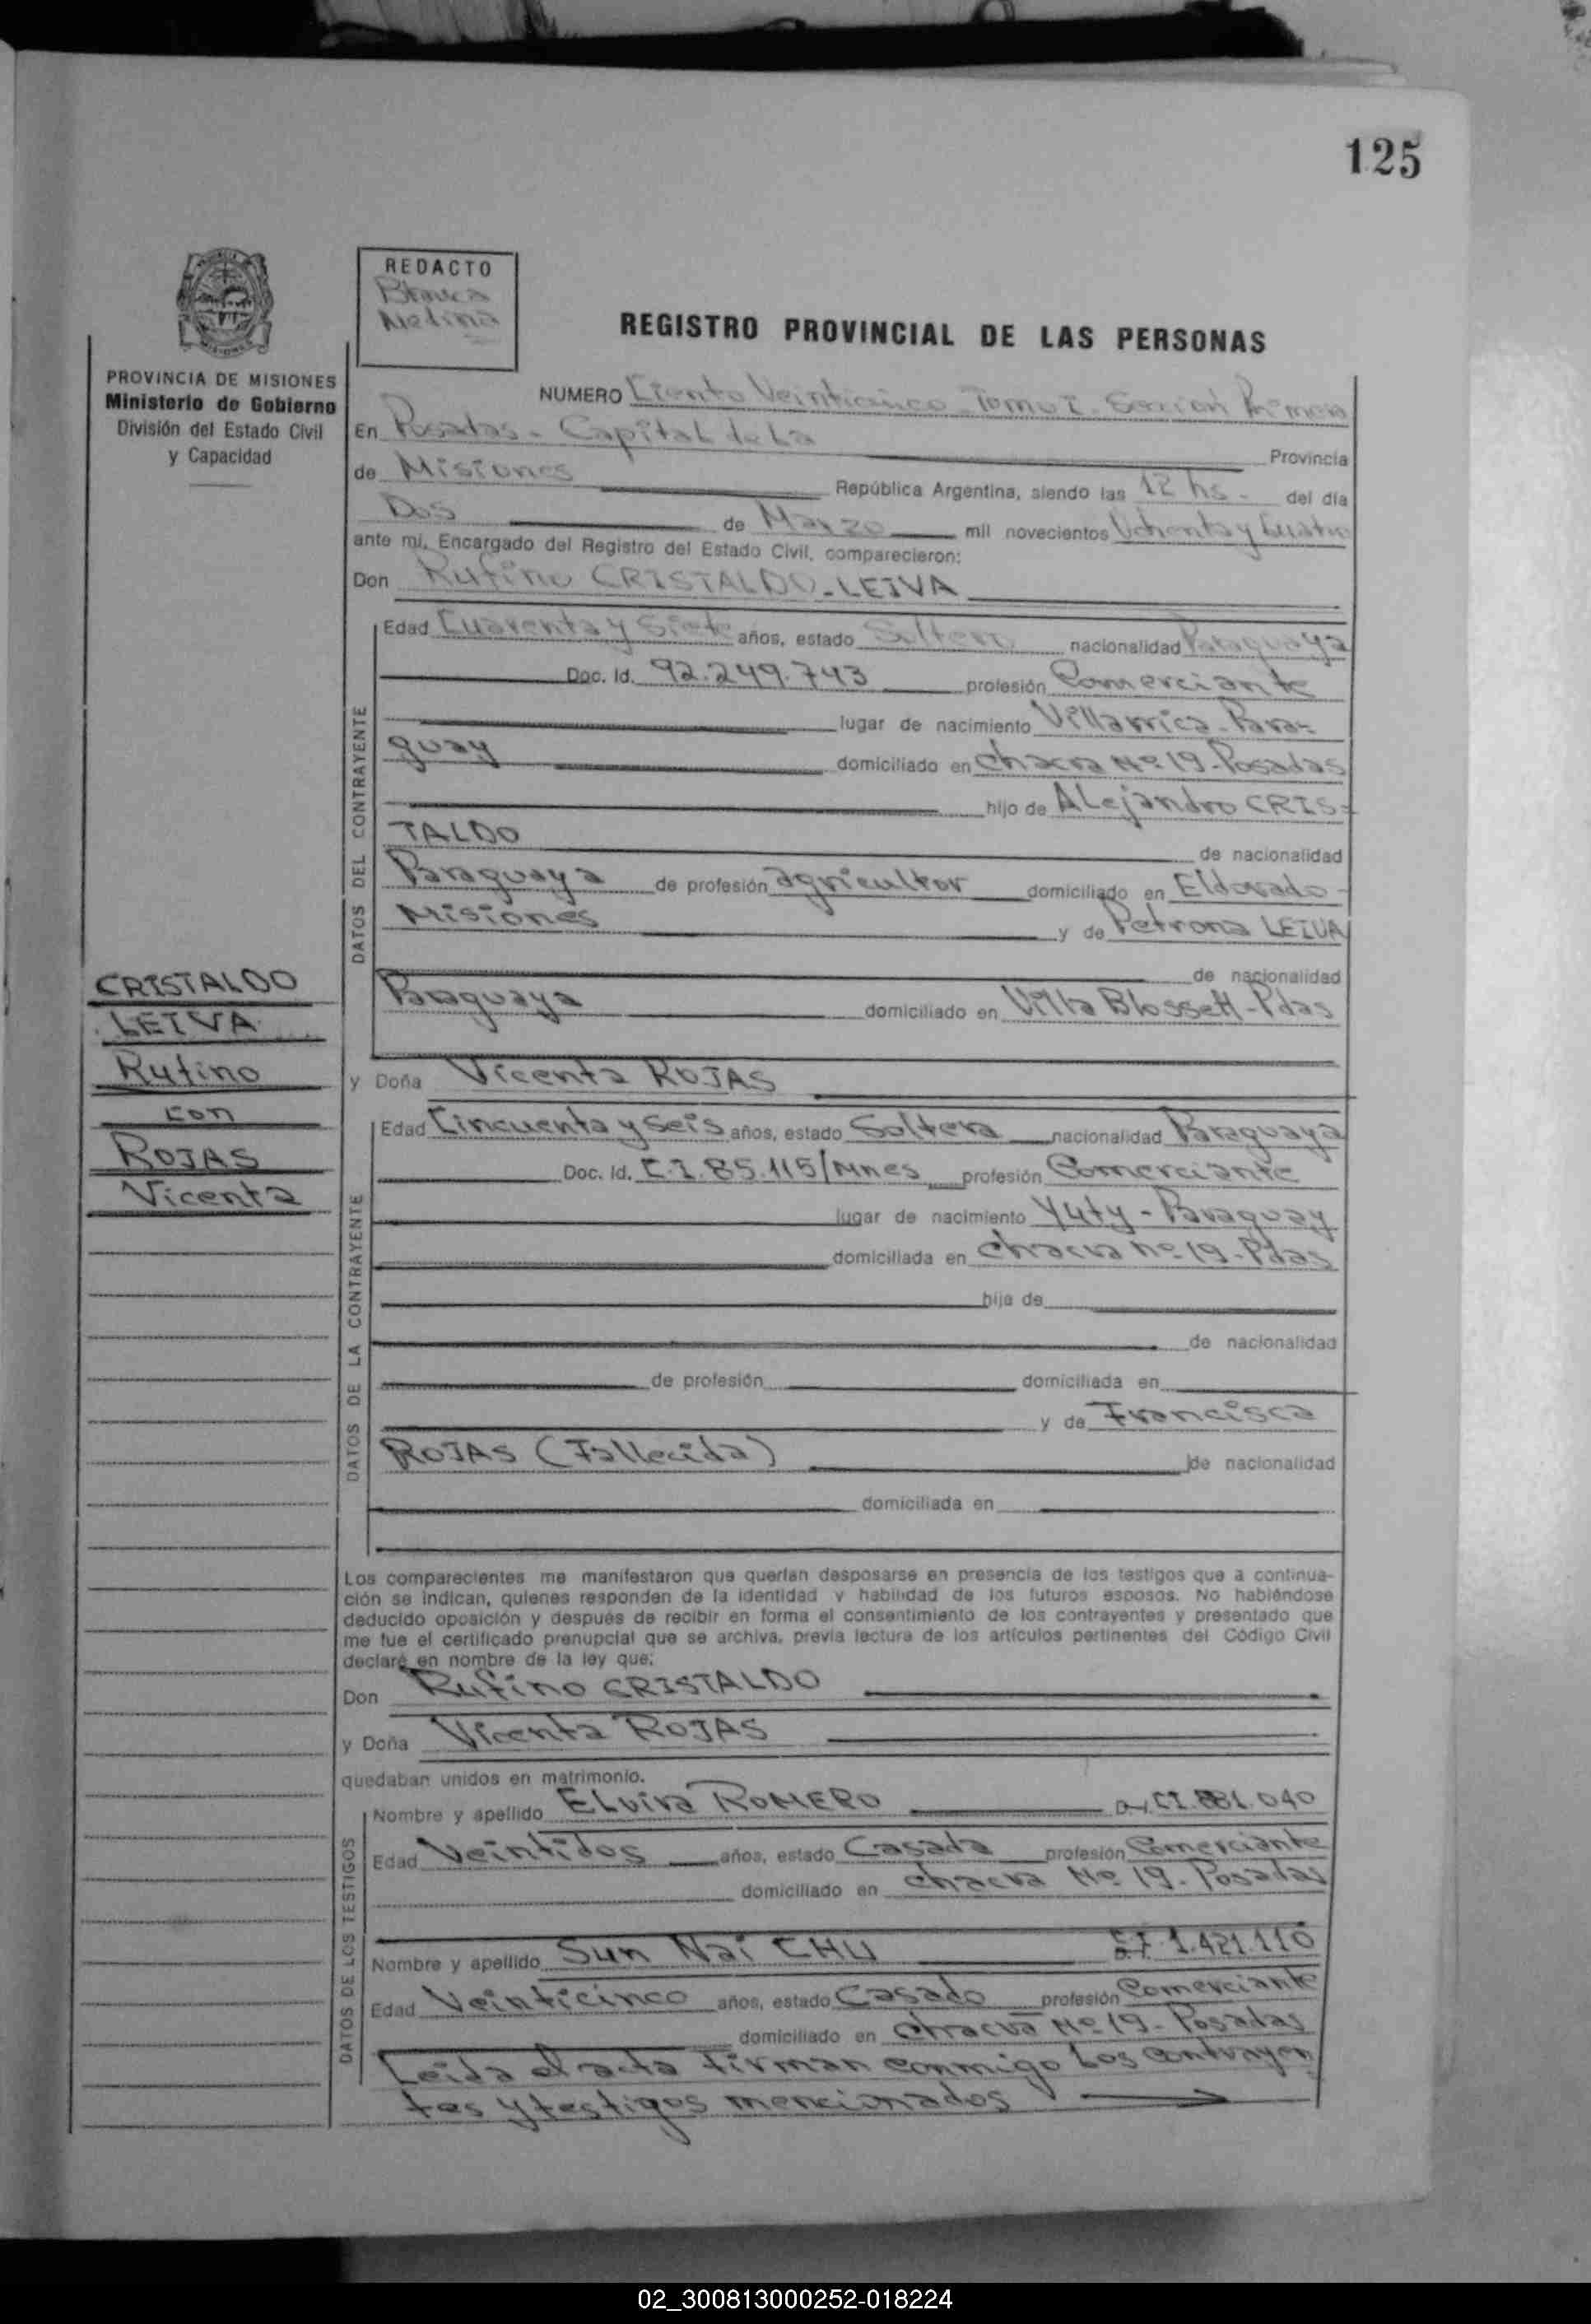 125
REDACTO
Blanca
Medina
REGISTRO PROVINCIAL DE LAS PERSONAS
PROVINCIA DE MISIONES
Ministerio de Gobierno
División del Estado Civil
y Capacidad
NUMERO Ciento Veinticinco - Tomo I - Sección Primera
En Posadas - Capital de La Provincia
de Misiones República Argentina, siendo las 12 hs - del día
Dos de Marzo mil novecientos Ochenta y Cuatro
ante mi, Encargado del Registro del Estado Civil, comparecieron:
Don Rufino CRISTALDO-LEIVA
DATOS DEL CONTRAYENTE
Edad Cuarenta y Siete años, estado Soltero nacionalidad Paraguaya
Doc. Id. 92.249.743 profesión Comerciante
lugar de nacimiento Villarrica - Para-
guay domiciliado en chacra Nº 19 - Posadas
hijo de Alejandro CRIS-
TALDO de nacionalidad
Paraguaya de profesión agricultor domiciliado en Eldorado -
Misiones y de Petrona LEIVA
de nacionalidad
Paraguaya domiciliado en Villa Blossett - Pdas
CRISTALDO
LEIVA
Rufino
con
ROJAS
Vicenta
y Doña Vicenta ROJAS
DATOS DE LA CONTRAYENTE
Edad Cincuenta y Seis años, estado Soltera nacionalidad Paraguaya
Doc. Id. C.I. 85.115/Mnes profesión Comerciante
lugar de nacimiento Yuty - Paraguay
domiciliada en chacra nº 19 - Pdas
hija de
de nacionalidad
de profesión domiciliada en
y de Francisca
ROJAS (Fallecida) de nacionalidad
domiciliada en
Los comparecientes me manifestaron que querían desposarse en presencia de los testigos que a continua-
ción se indican, quienes responden de la identidad y habilidad de los futuros esposos. No habiéndose
deducido oposición y después de recibir en forma el consentimiento de los contrayentes y presentado que
me fue el certificado prenupcial que se archiva, previa lectura de los artículos pertinentes del Código Civil
declaré en nombre de la ley que:
Don Rufino CRISTALDO
y Doña Vicenta ROJAS
quedaban unidos en matrimonio.
DATOS DE LOS TESTIGOS
Nombre y apellido Elvira ROMERO CI. 881.040
Edad Veintidos años, estado Casada profesión Comerciante
domiciliado en chacra Nº 19 - Posadas
Nombre y apellido Sun Nai CHU 1.421.110
Edad Veinticinco años, estado Casado profesión Comerciante
domiciliado en chacra Nº 19 - Posadas
Leida el acta firman conmigo Los contrayen
tes y testigos mencionados
02_300813000252-018224